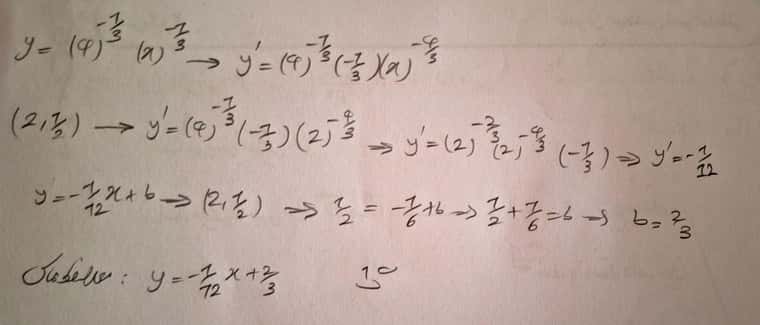 y = (4)^{-1/3} (x)^{-1/3} → y' = (4)^{-1/3} (-1/3)(x)^{-4/3}
(2, 1/2) → y' = (4)^{-1/3} (-1/3) (2)^{-4/3} ⇒ y' = (2)^{-2/3} (2)^{-4/3} (-1/3) ⇒ y' = -1/12
y = -1/12 x + b → (2, 1/2) ⇒ 1/2 = -1/6 + b ⇒ 1/2 + 1/6 = b → b = 2/3
: y = -1/12 x + 2/3